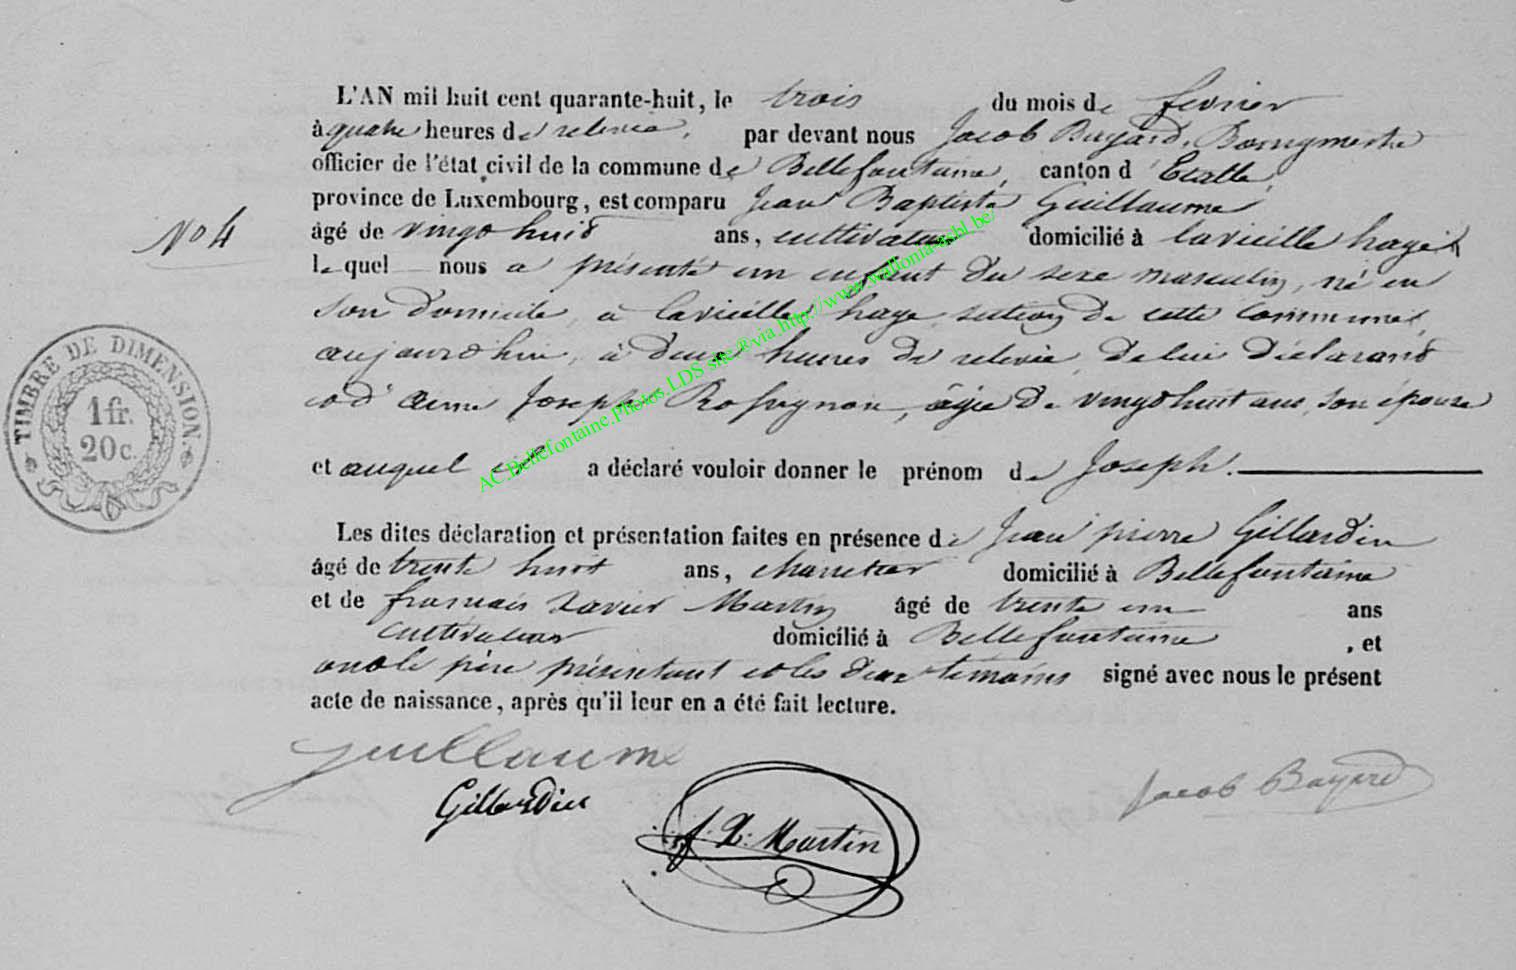 L'AN mil huit cent quarante-huit, le trois du mois de fevrier
à quatre heures de relevée, par devant nous Jacob Bayard, Bourgmestre
officier de l'état civil de la commune de Bellefontaine, canton d'Etalle,
province de Luxembourg, est comparu Jean Baptiste Guillaume
N° 4
âgé de vingt huit ans, cultivateur domicilié à lavieille haye
lequel nous a présenté un enfant du sexe masculin, né en
son domicile, à lavieille haye section de cette commune,
aujourd'hui, à deux heures de relevée, de lui déclarant
et d'anne Joseph Rossignon, âgée de vingt huit ans, son épouse
et auquel il a déclaré vouloir donner le prénom de Joseph.
Les dites déclaration et présentation faites en présence de Jean pierre Gillardin
âgé de trente huit ans, domicilié à Bellefontaine
et de francois Xavier Martin âgé de trente un ans
cultivateur domicilié à Bellefontaine, et
ont le père présentant et les deux témoins signé avec nous le présent
acte de naissance, après qu'il leur en a été fait lecture.
Guillaume
Gillardin
f. X. Martin
Jacob Bayard
TIMBRE DE DIMENSION.
1 fr.
20 c.
AC.Bellefontaine.Photos.LDS site.®via.http://www.wallonia-asbl.be/